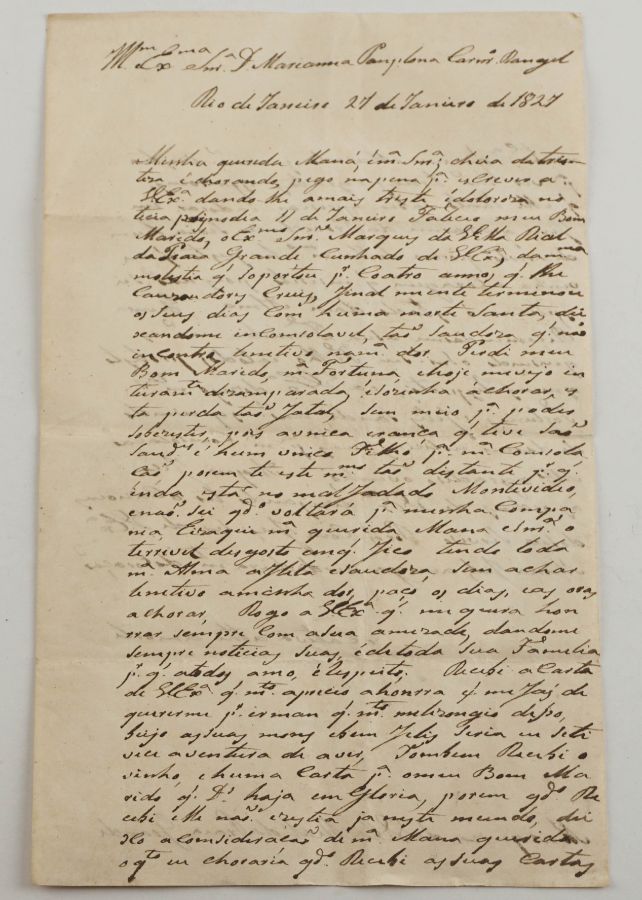 Mma Exma Snra D. Marianna Pamplona Carnr. Rangel
Rio de Janeiro 27 de Janeiro de 1827
Minha querida Maná, e mª Snrª, cheia de tris-
teza é chorando, pego na pena pª escrever a
VExª dando lhe a mais triste é doloroza no
ticia pois no dia 11 de Janeiro Faleceo meu Bom
Marido, o Exmo Snr Marques da Vª Real
da Praia Grande Cunhado de VExª, da m ma
molestia q' soportou pr Coatro annos, q' lhe
Cauzou dores Crueis, final mente terminou
os Seus dias Com huma morte Santa, dei
xandome inComsolavel, tao Saudoza q' não
incontro linitivo na mª dor. Perdi meu
Bom Marido, mª Fortuna, e hoje me vejo in
teiramte dezamparada, é sózinha á chorar, es
ta perda tao fatal, Sem meio pª poder
sobexister, pois a unica erança q' tive Sao
Saudes é hum unico Filho pª mª Comsola
Cao porem te este mmo tao distante pr q'
inda está no mal Fadado Montevideo,
e nao Sei qdo voltará pª minha Compa
nia, mª querida Mana e Snrª o
terrivel desgosto em q' fico tendo toda
mª Alma aflita é Saudoza Sem achar
linitivo a minha dor, paço os dias, e as oras
a chorar. Rogo a VExª q' me queira hon
rrar Sempre Com a sua amizade, dandome
Sempre noticias Suas, é de toda Sua Familia
pr q' a todos amo, é Respeito. Recebi a Carta
de VExª q' mto aprecio a honrra q' me faz de
quererme pr irman q' mto me lizongio disso,
beijo as suas mons e bem Feliz Seria eu Se ti
vece a ventura de a ver. Tombem Recebi o
vinho, e huma Carta pª o meu Bom Ma
rido q' Ds haja em Gloria, porem qdo Re
cebi elle nao ezestia ja neste mundo, dei
xo a Consideração de mª Mana querida
o qto eu choraria qdo Recebi as suas Cartas